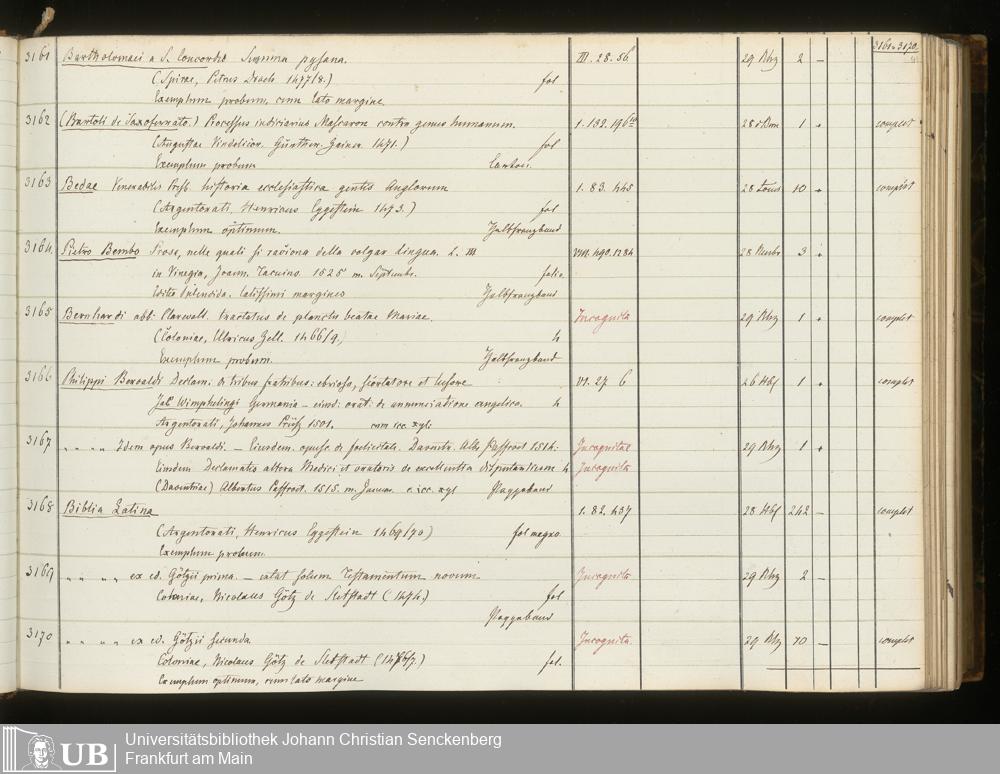 3161 - 3170
3161 Bartholomaei a S. Concordio Summa pysana. III. 28. 56 29 Rhz 2 —
(Spirae, Petrus Drach 1477/8.) fol
Exemplum probum, cum lato margine
3162 (Bartoli de Saxoferrato.) Processus iudiciarius Mascaron contra genus humanum. 1. 132. 1 28 1 complet
(Augustae Vindelicor. Günther. Zainer 1471.) fol
Exemplum probum Carton.
3163 Bedae Venerabilis Presb. historia ecclesiastica gentis Anglorum 1. 83. 445 28 10 complet
(Argentorati, Henricus Eggestein 1473.) fol
Exemplum optimum. Halbfranzband
3164. Pietro Bembo Prose, nelle quali si raciona della volgar lingua. L. III VIII. 490. 1284 28 3
in Vinegia, Joann. Tacuino. 1525 m. Septembr. folio
Editio splendida. latissimi margines Halbfranzband
3165 Bernhardi abb: Clarevall. tractatus de planctu beatae Mariae. Incognita 29 Rhz 1 complet
(Coloniae, Ulricus Zell. 1466/9.) 4
Exemplum probum. Halbfranzband
3166 Philippi Beroaldi Declam: de tribus fratribus: ebrioso, scortatore et lusore VI. 27. 6 26 Hbf 1 complet
Jac. Wimphelingi Germania — eiusd: orat: de annunciatione angelica. 4
Argentorati, Johannes Prüß 1501. cum icc. xyli
3167 " " " Idem opus Beroaldi. — Eiusdem opusc. de foelicitate. Daventr. Alb. Paffraet 1514: Incognitae 29 Rhz 1
Eiusdem Declamatio altera Medici et oratoris de excellentia disputantium 4 Incognita
(Daventriae) Albertus Paffraet. 1515. m. Januar. c. icc. xyl Pappband
3168 Biblia Latina 1. 82. 437 28 Hbf 242 — complet
(Argentorati, Henricus Eggestein 1469/70) fol magno
Exemplum probum.
3169 " " " ex ed. Götzii prima. — extat solum Testamentum novum Incognita 29 Rhz 2 —
Coloniae, Nicolaus Götz de Sletstadt (1474.) fol
Pappband
3170 " " " ex ed. Götzii secunda. Incognita. 29 Rhz 70 — complet
Coloniae, Nicolaus Götz de Sletstadt (1476/7.) fol.
Exemplum optimum, cum lato margine
UB Universitätsbibliothek Johann Christian Senckenberg
Frankfurt am Main